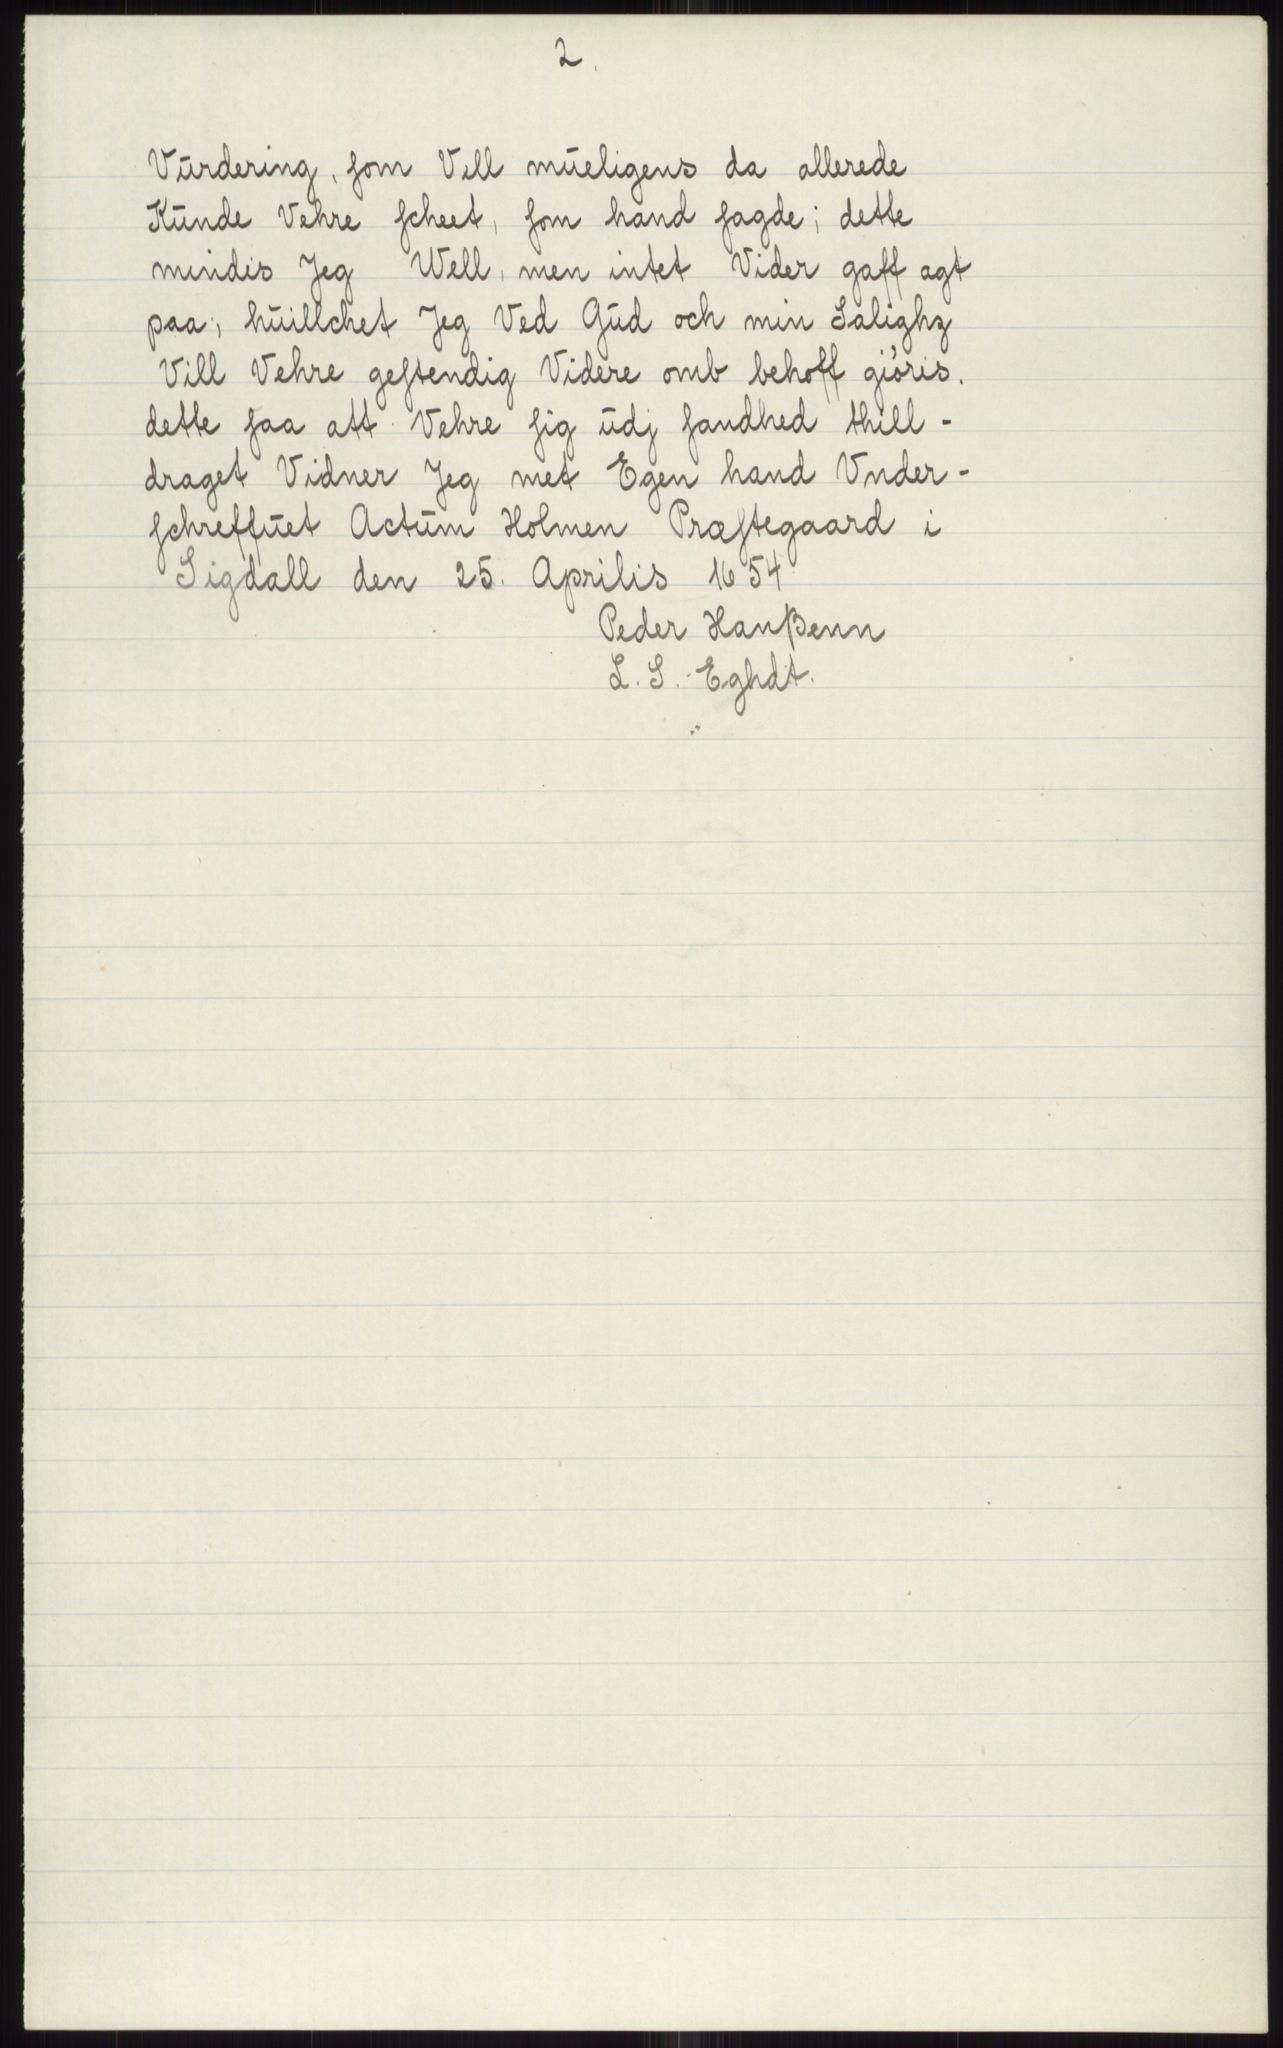 2.
Vurdering, som Vell mueligens da allerede
Kunde Vehre scheet, som hand sagde; dette
mindis Jeg Well, men intet Vider gaff agt
paa; huillchet Jeg Ved Gud och min Salighz
Vill Vehre gestendig Videre omb behoff giöris.
dette saa att Vehre sig udj sandhed thill-
draget Vidner Jeg met Egen hand Vnder-
schreffuet Actum Holmen Præstegaard i
Sigdall den 25. Aprilis 1654
Peder Hanßenn
L. S. Eghdt.